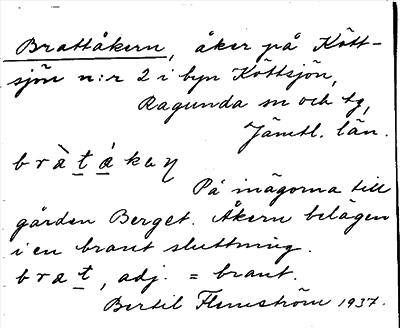 Brattåkern, åker på Kött-
sjön n:r 2 i byn Köttsjön,
Ragunda sn och tg,
Jämtl. län.
På inägorna till
gården Berget. Åkern belägen
i en brant sluttning.
adj. = brant.
Bertil Flemström 1937.